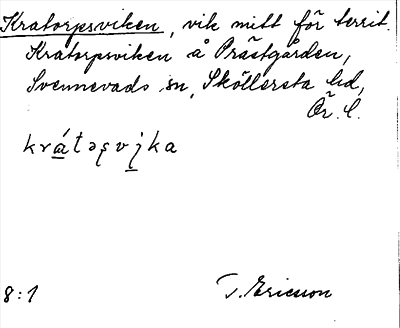 Kratorpsviken, vik mitt för territ.
Kratorpsviken å Prästgården,
Svennevads sn, Sköllersta hd,
Ör. l.
krátəʂvịka
8:1 T. Ericsson